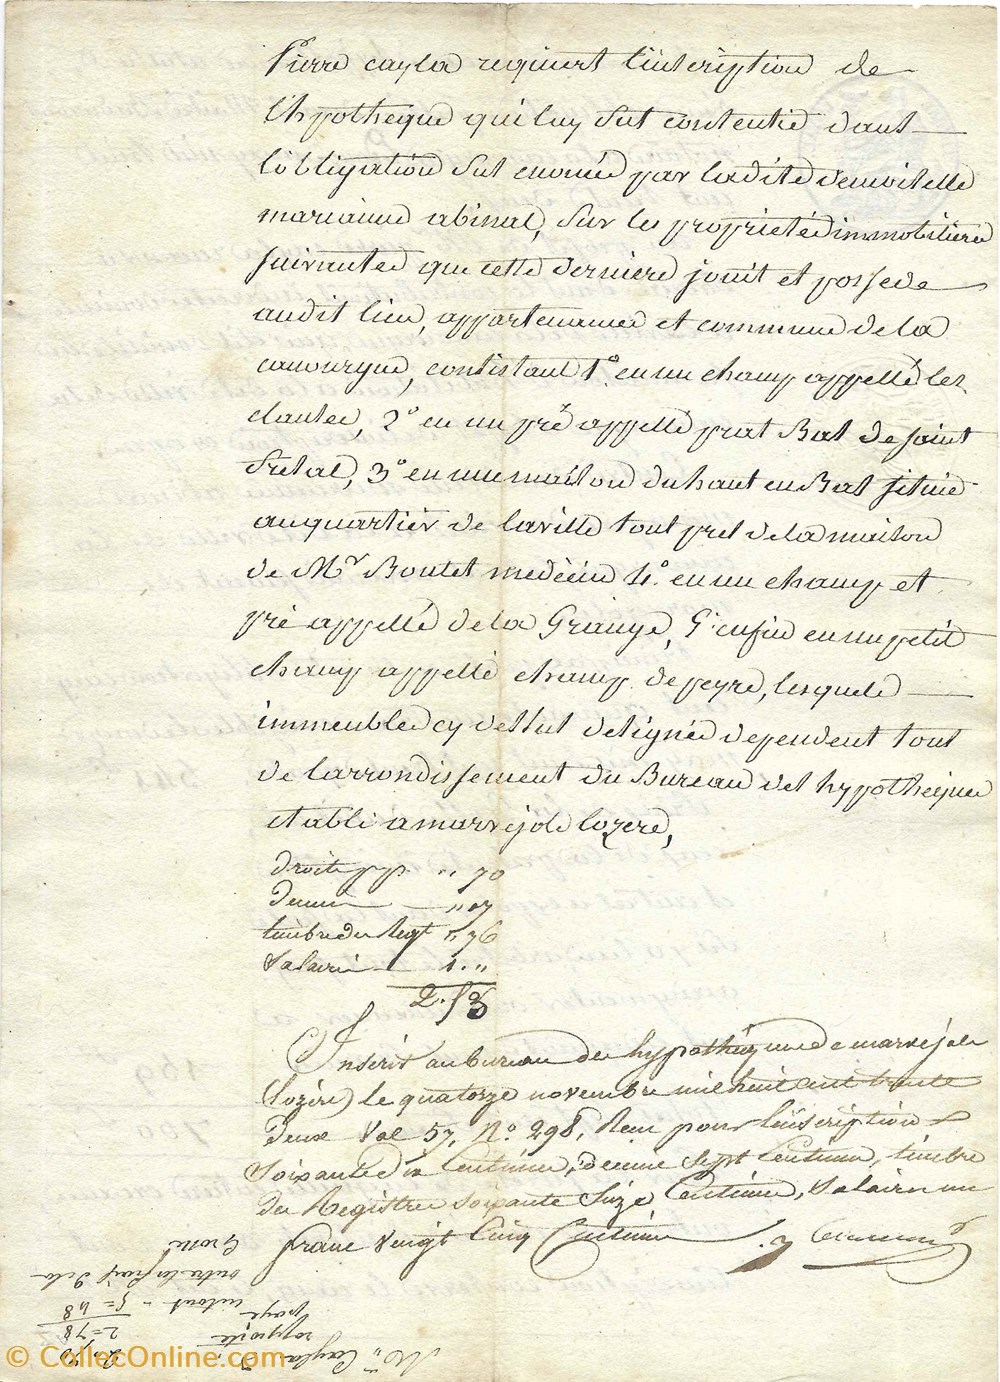 Pierre cayla requiert l'inscription de
l'hypotheque qui luy est consentie dans
l'obligation sus enoncée par ladite demoiselle
marianne abinal, sur les proprietés immobilieres
suivantes que cette derniere jouit et possede
audit lieu, appartenances et commune de la
canourgue, consistant 1° en un champ appellé les
clautes, 2° en un pré appellé prat Bas de saint
frezal, 3° en une maison du haut en Bas située
au quartier de la ville tout pres de la maison
de Mr Boutet medecin 4° en un champ et
pré appellé de la Grange, 5° enfin en un petit
champ appellé champ de peyre, lesquels
immeubles cy dessus designés dependent tous
de l'arrondissement du Bureau des hypotheques
etabli a marvejols lozere,
droits pp. " 70
decime " 07
timbre du Regt " 76
Salaire 1. "
2. 53
Inscrit au bureau des hypothèques de marvejols
(Lozère) le quatorze novembre mil huit cent trente
deux Vol 57, N° 298, Reçu pour l'inscription
soixante dix Centimes, décime sept Centimes, timbre
du Registre soixante seize Centimes, Salaire un
franc Vingt Cinq Centimes
Mr Cayla
rapporté
paye
en tout
outre les frais de la
Grosse
2=78
5=48
© CollecOnline.com